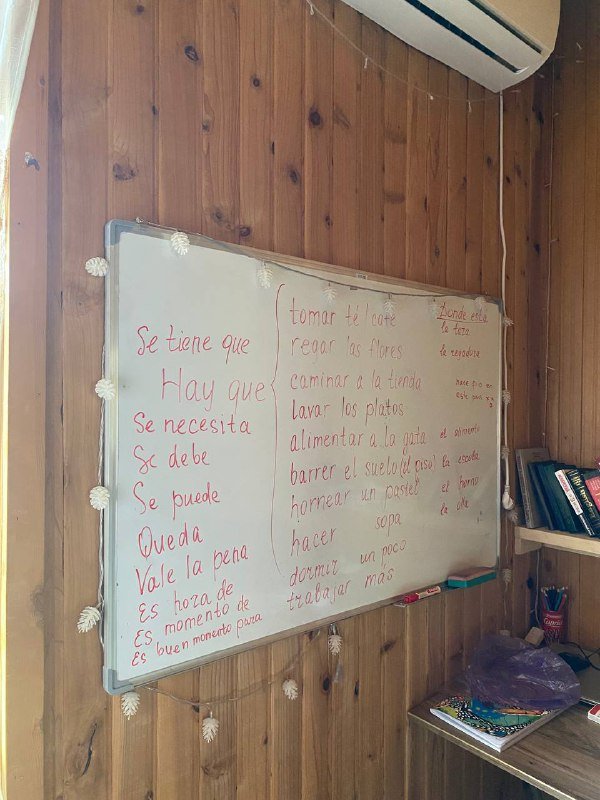 Se tiene que
Hay que
Se necesita
Se debe
Se puede
Queda
Vale la pena
Es hora de
Es momento de
Es buen momento para
tomar té/café
regar las flores
caminar a la tienda
lavar los platos
alimentar a la gata
barrer el suelo (el piso)
hornear un pastel
hacer sopa
dormir un poco
trabajar más
Donde está
la taza
la
hace frío en
este
el alimento
la escoba
el horno
la olla